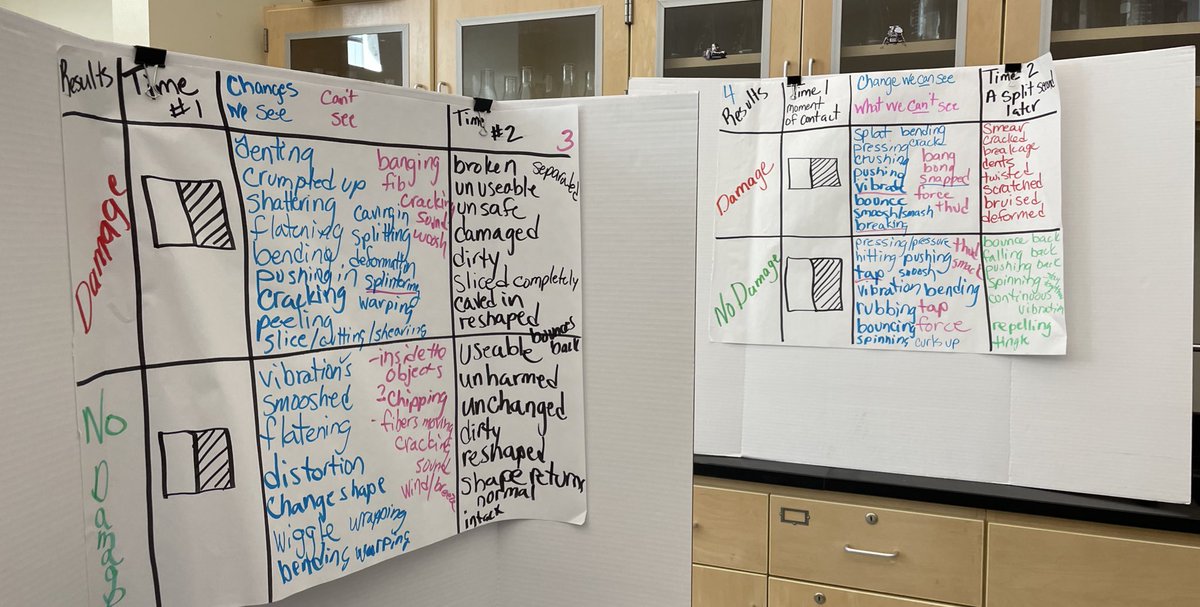 Results
Time #1
Changes we see
Can't see
Time #2
3
Damage
denting
crumpled up
shattering
flatening
bending
pushing in
cracking
peeling
slice/cutting/shearing
caving in
splitting
deformation
splintering
warping
banging
fib
cracking
sound
broken
separated
un useable
unsafe
damaged
dirty
sliced completely
caved in
reshaped
No Damage
vibration's
smooshed
flatening
distortion
change shape
wiggle wrapping
bending warping
-inside the
objects
chipping
-fibers moving
cracking
sound
bounces
back
useable
unharmed
unchanged
dirty
reshaped
shape return
normal
intact
4
Results
Time 1
moment
of contact
Change we can see
What we can't see
Time 2
A split second
later
Damage
splat bending
pressing crackd
crushing
pushing
vibrate
bounce
smoosh/smash
breaking
bang
bong
snapped
force
thud
smear
cracked
breakage
dents
twisted
scratched
bruised
deformed
No Damage
pressing/pressure
hitting pushing
tap smoosh
vibration bending
rubbing
bouncing
spinning curls up
thud
smack
tap
force
bounce back
falling back
pushing back
spinning
continuous
vibration
repelling